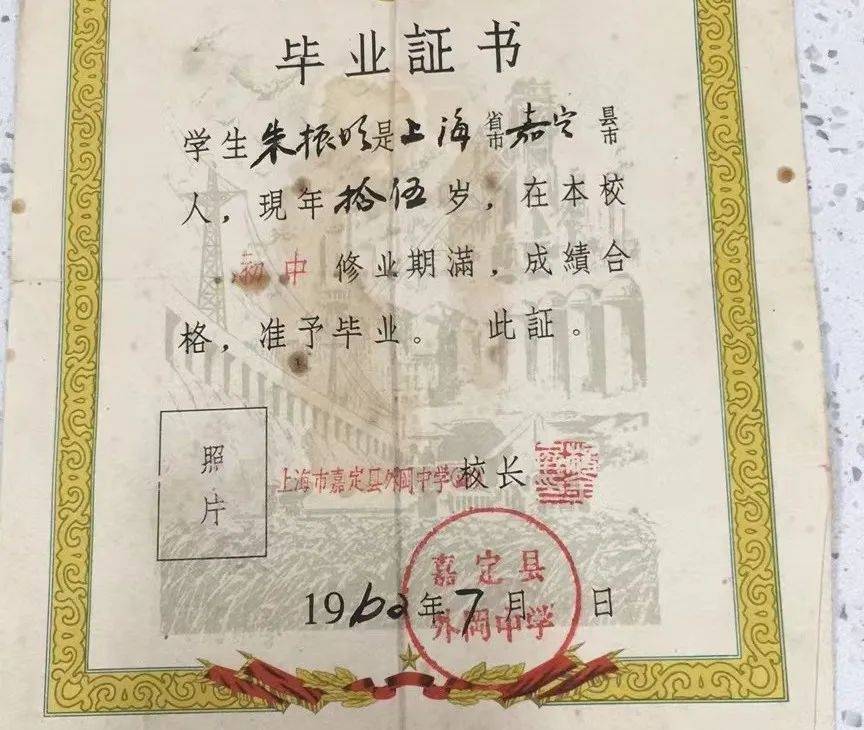 毕业証书
学生朱振明是上海省市嘉定县市
人，現年拾伍岁，在本校
初中修业期滿，成績合
格，准予毕业。此証。
照片
上海市嘉定县外岡中学
校长
嘉定县
外岡中学
196 年7月 日